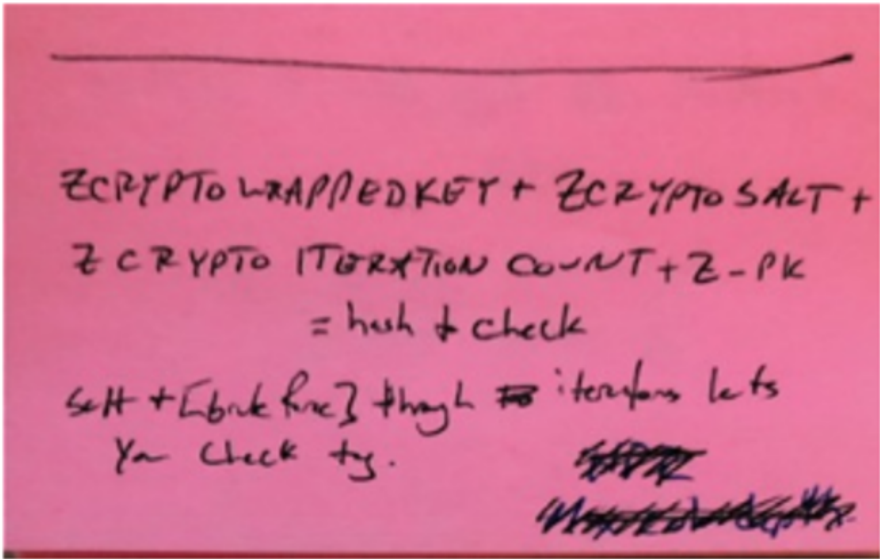 ZCRYPTOWRAPPEDKEY + ZCRYPTO SALT +
Z CRYPTO ITERATION COUNT + Z - PK
= hash to check
salt + [brute force] through iterations lets
you check tag.